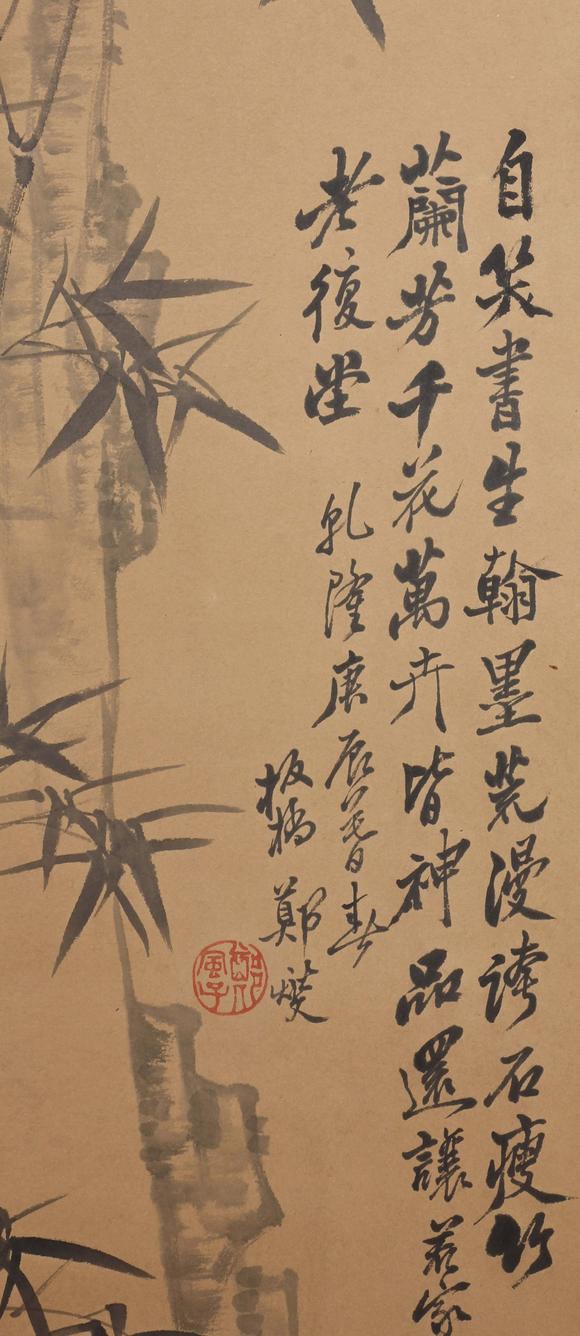 自笑書生翰墨荒漫誇石瘦竹
蘭芳千花萬卉皆神品還讓君家
老復堂
乾隆庚辰暮春
板橋鄭燮
鄭風子